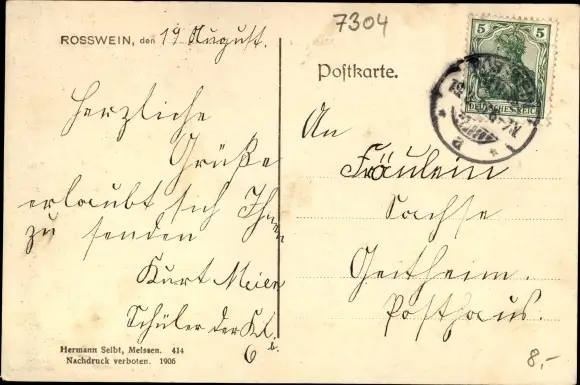 ROSSWEIN, den 19 August.
Herzliche
Grüße
erlaubt sich Ihnen
zu senden
Kurt Meier
Schüler der Kl.
6 b.
Hermann Seibt, Meissen. 414
Nachdruck verboten. 1906
7304
Postkarte.
5 5
DEUTSCHES REICH
An
Fräulein
Sachse
Geitheim.
Posthaus.
8,-